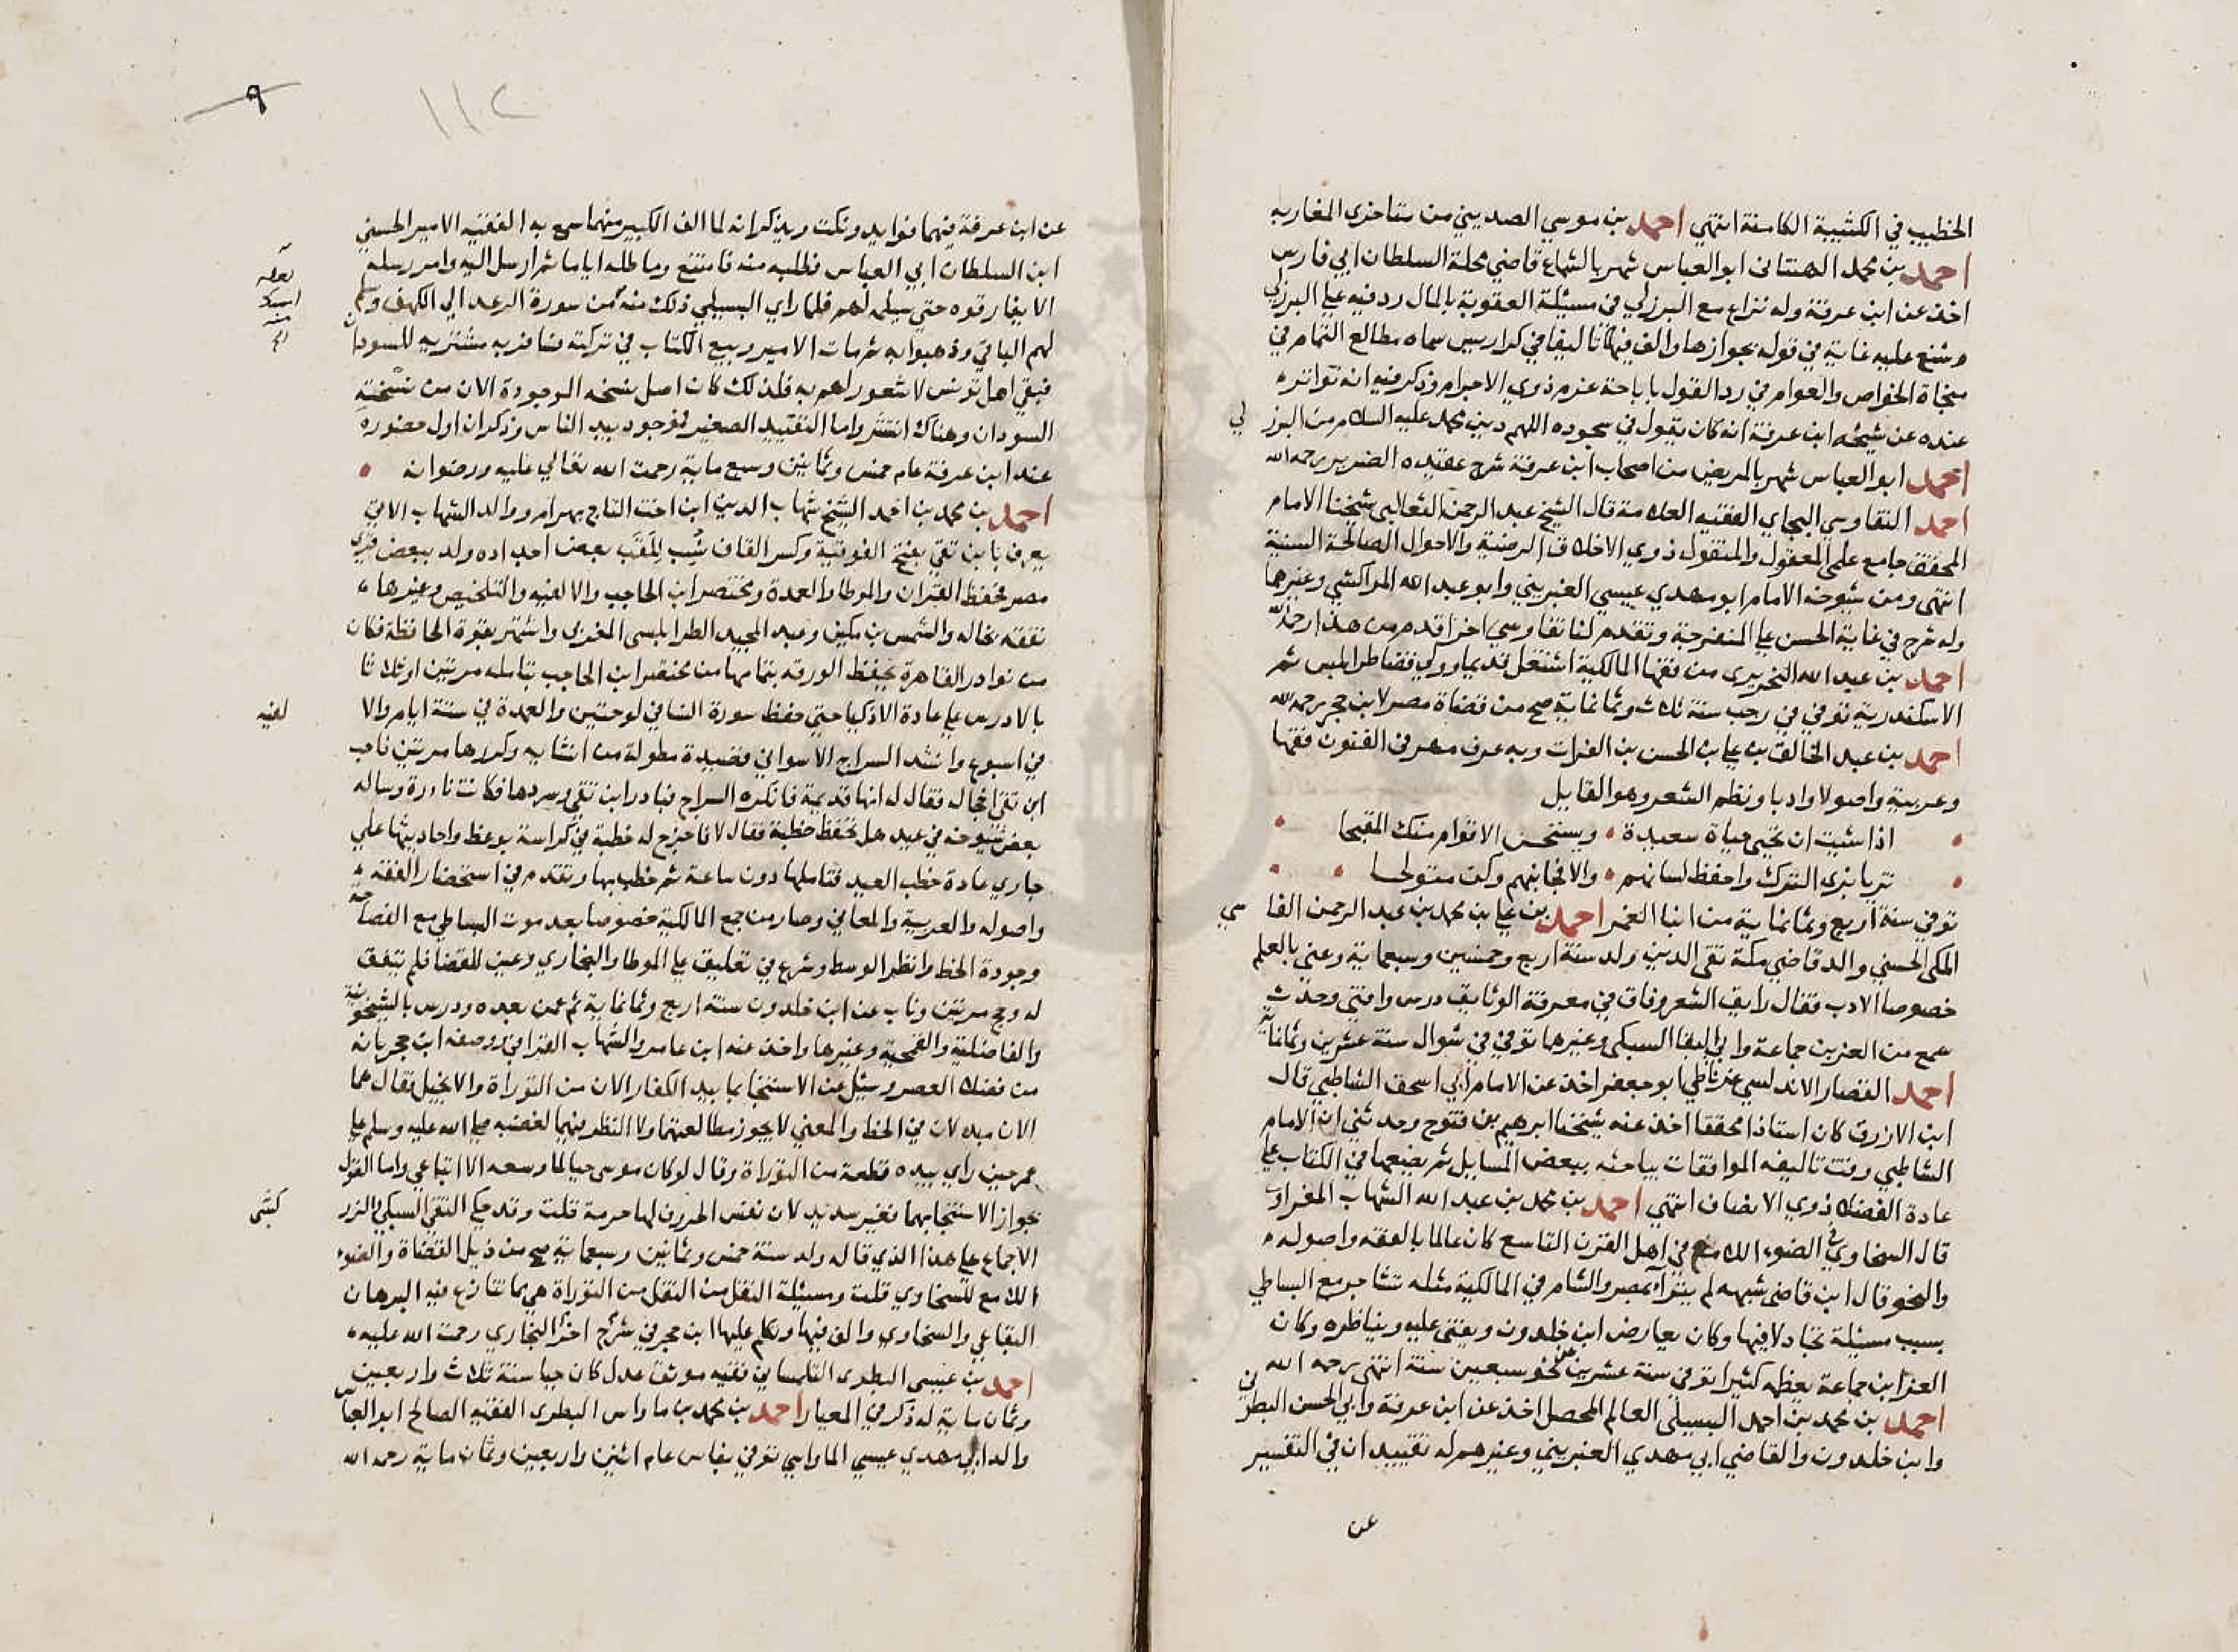 الخطيب في الكتيبة الكامنة انتهي احمد بن موسي الصديني من متاخري المغاربه
احمد بن محمد الهنتاتى ابو العباس شهر بالشماع قاضي محلة السلطان ابي فارس
اخذ عن ابن عرفة وله نزاع مع البرزلي في مسئلة العقوبة بالمال رد فيه علي البرزلي
وشنع عليه غاية في قوله بجوازها والف فيها تاليفا في كراريس سماه مطالع التمام في
منجاة الخواص والعوام في رد القول باباحة غرم ذوي الاجرام وذكر فيه انه تواتر
عنده عن شيخه ابن عرفة انه كان يقول في سجوده اللهم دين محمد عليه السلام من البرزلي
احمد ابو العباس شهر بالمريض من اصحاب ابن عرفة شرح عقيدة الضرير رحمه الله
احمد النقاوسي البجاي الفقيه العلامة قال الشيخ عبد الرحمن الثعالبي شيخنا الامام
المحقق جامع علمي المعقول والمنقول ذوي الاخلاق المرضية والاحوال الصالحة السنية
انتهى ومن شيوخه الامام ابو مهدي عيسي الغبريني وابو عبد الله المراكشي وغيرها
وله شرح في غاية الحسن علي المنفرجة وتقدم لنا نقاوسي اخر اقدم من هذا رحمه الله
احمد بن عبد الله النحريرى من فقها المالكية اشتغل قديما وولي قضا طرابلس ثم
الاسكندرية توفي في رجب سنة ثلاث وثمانماية صح من قضاة مصر لابن حجر رحمه الله
احمد بن عبد الخالق بن علي بن الحسن بن الفرات وبه عرف مهر في الفنون فقها
وعربية واصولا وادبا ونظم الشعر وهو القايل
اذا شيت ان تحيى حياة سعيدة ويستحسن الاقوام منك المقبحا
تزيا بزى الترك واحفظ لسانهم والا فجانبهم وكن متولحا
توفي سنة اربع وثمانماية من انبا الغمر احمد بن علي بن محمد بن عبد الرحمن الفاسي
المكي الحسني والد قاضي مكة تقى الدين ولد سنة اربع وخمسين وسبعماية وعني بالعلم
خصوصا الادب فقال رايق الشعر وفاق في معرفة الوثايق درس وافتي وحدث
سمع من العز بن جماعة وابي البقا السبكى وغيرها توفي في شوال سنة عشرين وثمانماية
احمد القصار الاندلسي غرناطي ابو جعفر اخذ عن الامام ابي اسحق الشاطبي قال
ابن الازرق كان استاذا محققا اخذ عنه شيخنا ابرهيم بن فتوح وحدثني ان الامام
الشاطبي وقت تاليفه الموافقات يباحثه ببعض المسايل ثم يضعها في الكتاب علي
عادة الفضلا ذوي الانصاف انتهي احمد بن محمد بن عبد الله الشهاب المغراوي
قال السخاوي في الضوء اللامع في اهل القرن التاسع كان عالما بالفقه واصوله
والنحو قال ابن قاضي شهبه لم يترا بمصر والشام في المالكية مثله تشاجر مع البساطي
بسبب مسئلة تجادلا فيها وكان يعارض ابن خلدون ويفتى عليه ويناظره وكان
العز ابن جماعة يعظمه كثيرا توفي سنة عشرين عن نحو سبعين سنة انتهى رحمه الله
احمد بن محمد بن احمد البسيلى العالم المحصل اخذ عن ابن عرفة وابي الحسن البطرني
وابن خلدون والقاضي ابي مهدي الغبريني وغيرهم له تقييدان في التفسير
عن
١١٢
٩
عن ابن عرفة فيهما فوايد ونكت ويذكر انه لما الف الكبير منهما سمع به الفقيه الامير الحسني
ابن السلطان ابي العباس فطلبه منه فامتنع وماطله اياما ثم ارسل اليه وامر رسله
الا يفارقوه حتي يسلمه لهم فلما راي البسيلي ذلك منه من سورة الرعد الي الكهف وسلم
لهم الباقي وذهبوا به ثم مات الامير وبيع الكتاب في تركته فسافر به مشتريه للسودان
فبقي اهل تونس لا شعور لهم به فلذلك كان اصل نسخه الموجودة الان من نسخة
السودان وهناك انتشر واما التقييد الصغير فموجود بيد الناس وذكر ان اول حضوره
عند ابن عرفة عام خمس وثمانين وسبع ماية رحمت الله تعالي عليه ورضوانه
احمد بن محمد بن احمد الشيخ شهاب الدين ابن اخت التاج بهرام ووالد الشهاب الاتي
يعرف بابن تقي بفتح الفوقية وكسر القاف نسب للقب بعض اجداده ولد ببعض قري
مصر فحفظ القران والموطا والعمدة ومختصر ابن الحاجب والالفيه والتلخيص وغيرها
تفقه بخاله والشمس بن مكين وعبد المجيد الطرابلسى المغربي واشتهر بقوة الحافظة فكان
من نوادر القاهرة يحفظ الورقه بتمامها من مختصر ابن الحاجب بتامله مرتين او ثلاثا
بلا درس علي عادة الاذكيا حتي حفظ سورة النسا في لوحتين والعمدة في ستة ايام والا
لفيه
في اسبوع وانشد السراج الاسواني قصيدة مطولة من انشايه وكررها مرتين فاحب
ابن تقي اخجاله فقال له انها قديمة فانكره السراج فبادر ابن تقي وسردها فكانت نادرة وساله
بعض شيوخه في عيد هل تحفظ خطبة فقال لا فاخرج له خطبة في كراسة بوعظ واحاديثها علي
جاري عادة خطب العيد فتاملها دون ساعة ثم خطب بها وتقدم في استحضار الفقه
واصوله والعربية والمعاني وصار من جمع المالكية خصوصا بعد موت البساطي مع الفصاحة
وجودة الخط والنظم الوسط وشرع في تعليق علي الموطا والبخاري وعين للقضا فلم يتفق
له وحج مرتين وناب عن ابن خلدون سنة اربع وثمانماية ثم عمن بعده ودرس بالشيخونية
والفاضلية والقمحية وغيرها واخذ عنه ابن عامر والشهاب القرافي ووصفه ابن حجر بانه
من فضلاء العصر وسئل عن الاستنجا بما بيد الكفار الان من التوراة والانجيل فقال هما
الان مبدلان في الخط والمعني لا يجوز مطالعتهما ولا النظر فيهما لغضبه صلي الله عليه وسلم علي
عمر حين راي بيده قطعة من التوراة وقال لو كان موسى حيا لما وسعه الا اتباعي واما القول
بجواز الاستنجا بهما فغير سديد لان نفس الحروف لها حرمة قلت وقد حكي التقى السبكي والزر
كشى
الاجماع علي هذا الذي قاله ولد سنة خمس وثمانين وسبعماية صح من ذيل القضاة والضوء
اللامع للسخاوي قلت ومسئلة النقل من التوراة هي مما تنازع فيه البرهان
البقاعي والسخاوي والف فيها وتكلم عليها ابن حجر في شرح اخر البخاري رحمت الله عليه
احمد بن عيسى البطوى التلمساني فقيه موثق عدل كان حيا سنة ثلاث واربعين
وثمان ماية له ذكر في المعيار احمد بن محمد بن ماواس البطوى الفقيه الصالح ابو العباس
والد ابي مهدي عيسي الماواسي توفي بفاس عام اثنين واربعين وثمان ماية رحمه الله